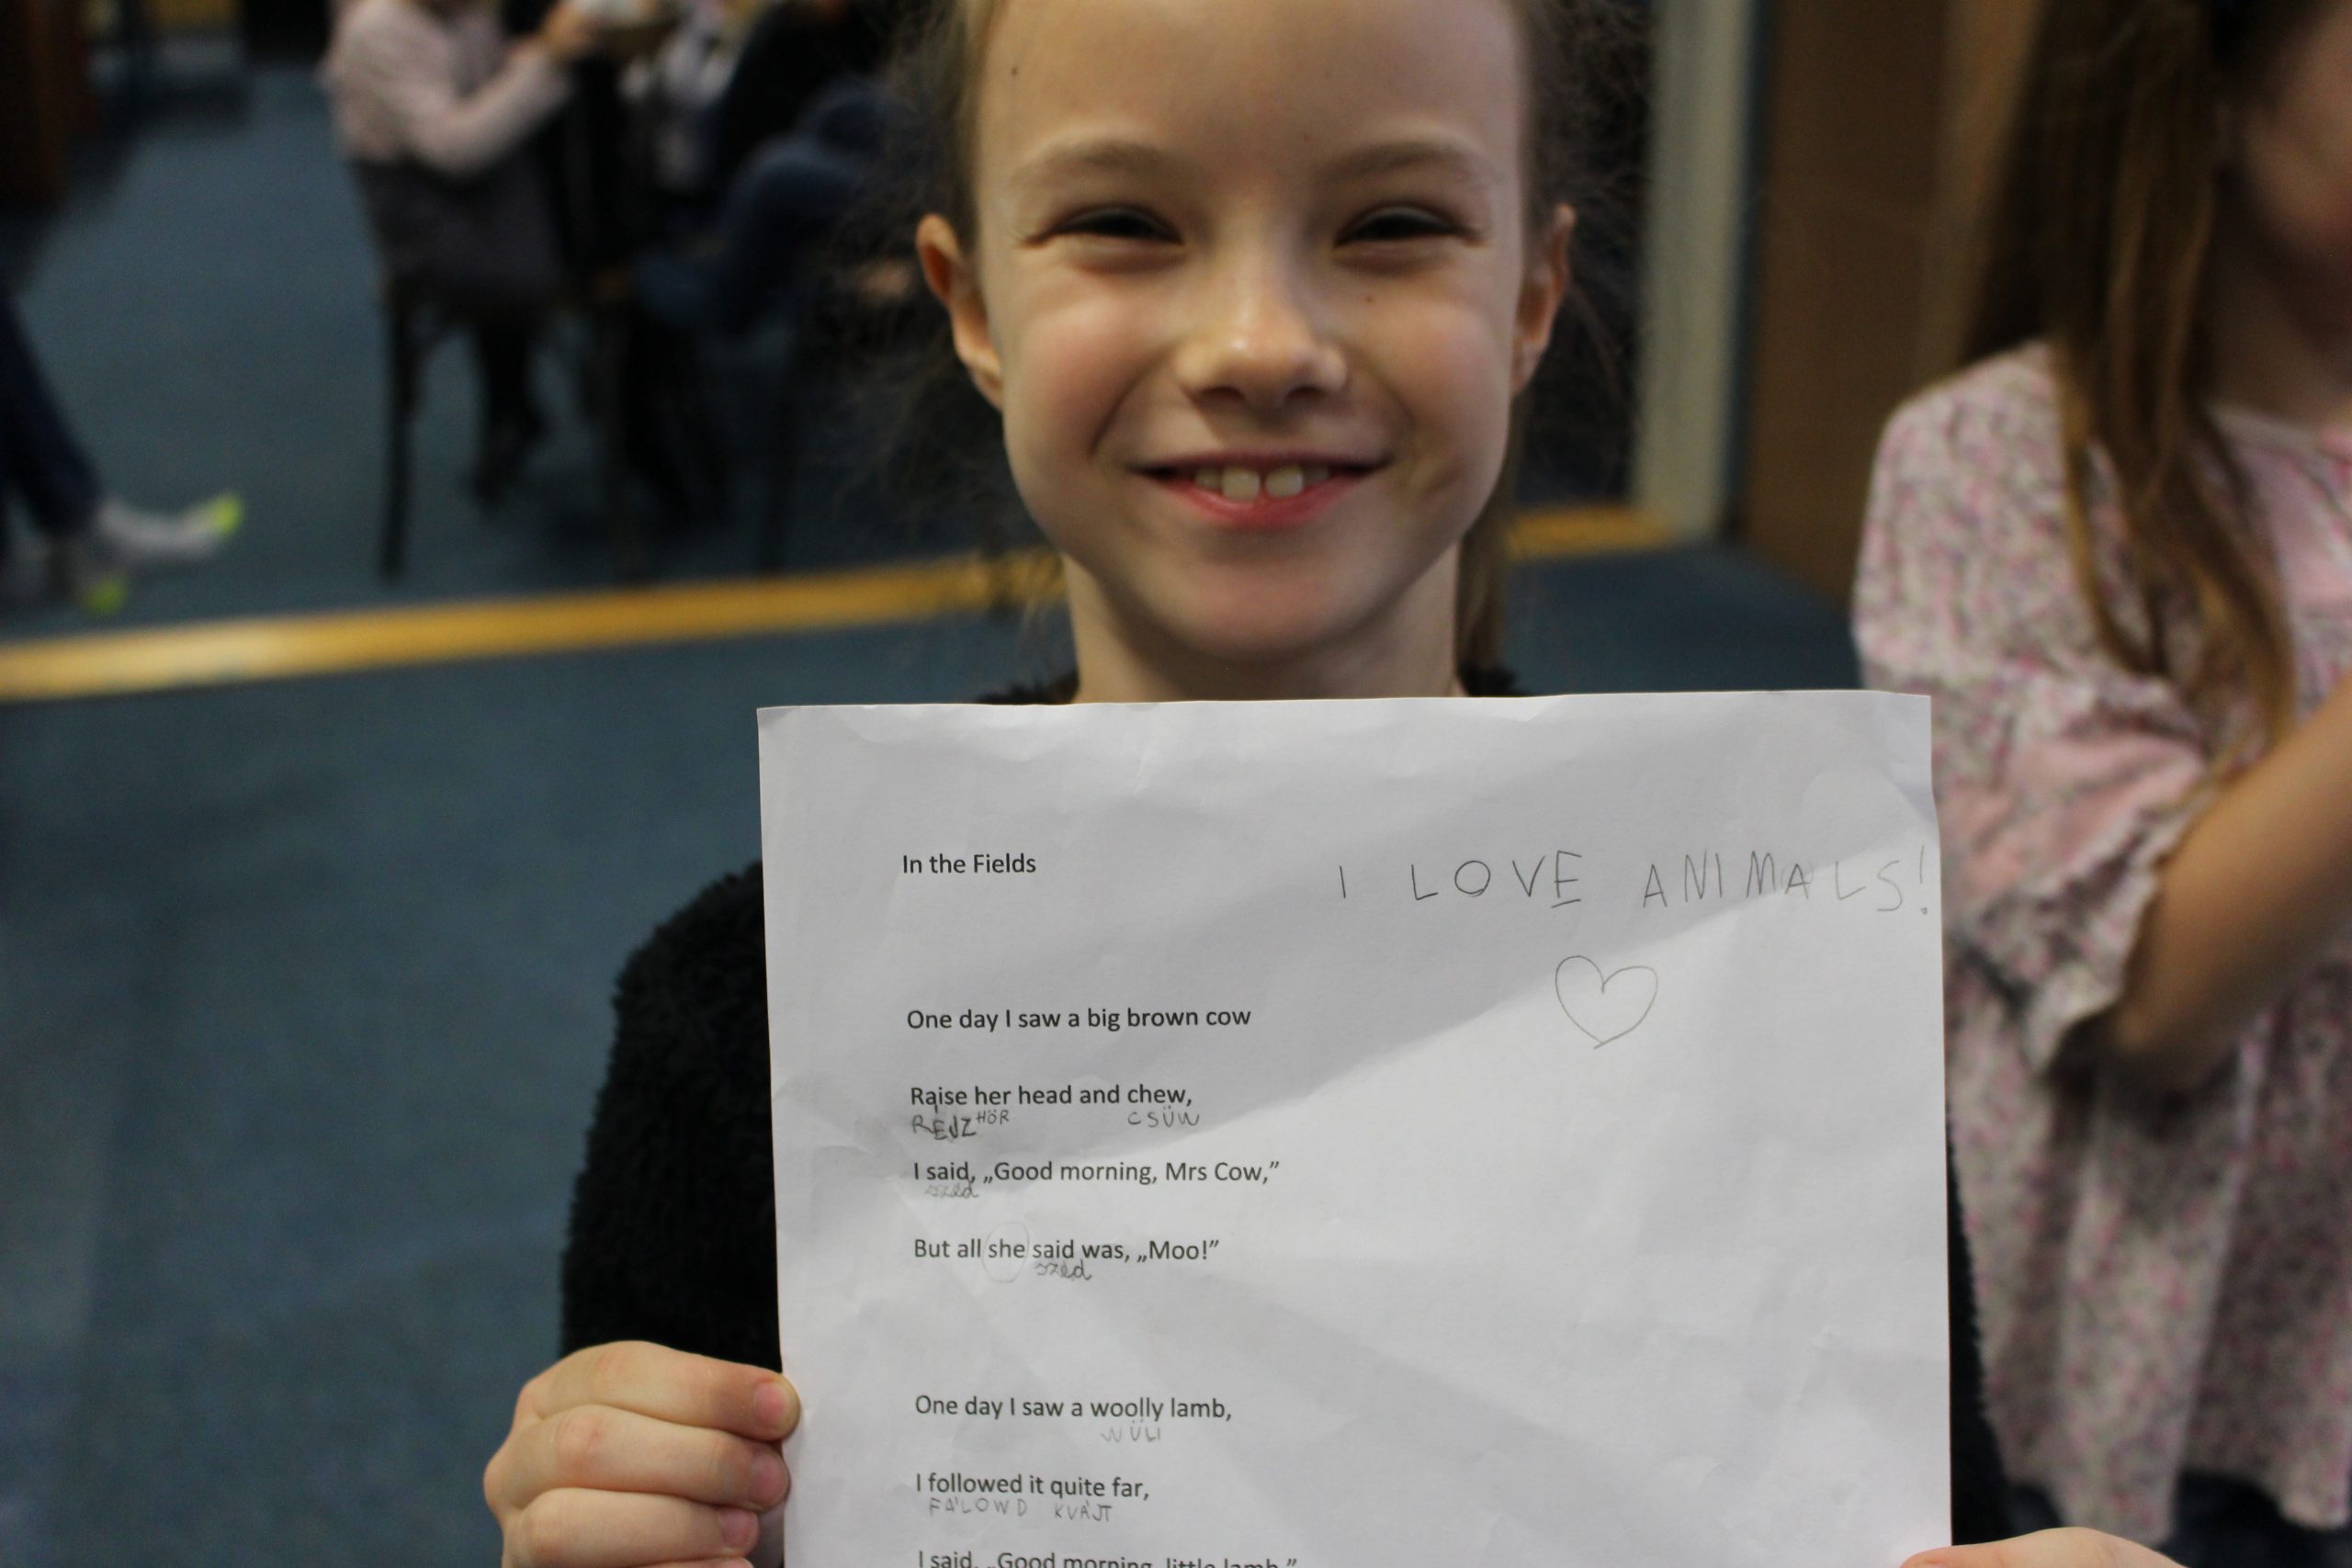 In the Fields
I LOVE ANIMALS!
One day I saw a big brown cow
Raise her head and chew,
REJZ HÖR CSÜW
I said, „Good morning, Mrs Cow,”
szed
But all she said was, „Moo!”
széd
One day I saw a woolly lamb,
WÜLI
I followed it quite far,
FÁLOWD KVÁJT
I said, „Good morning, little lamb,”